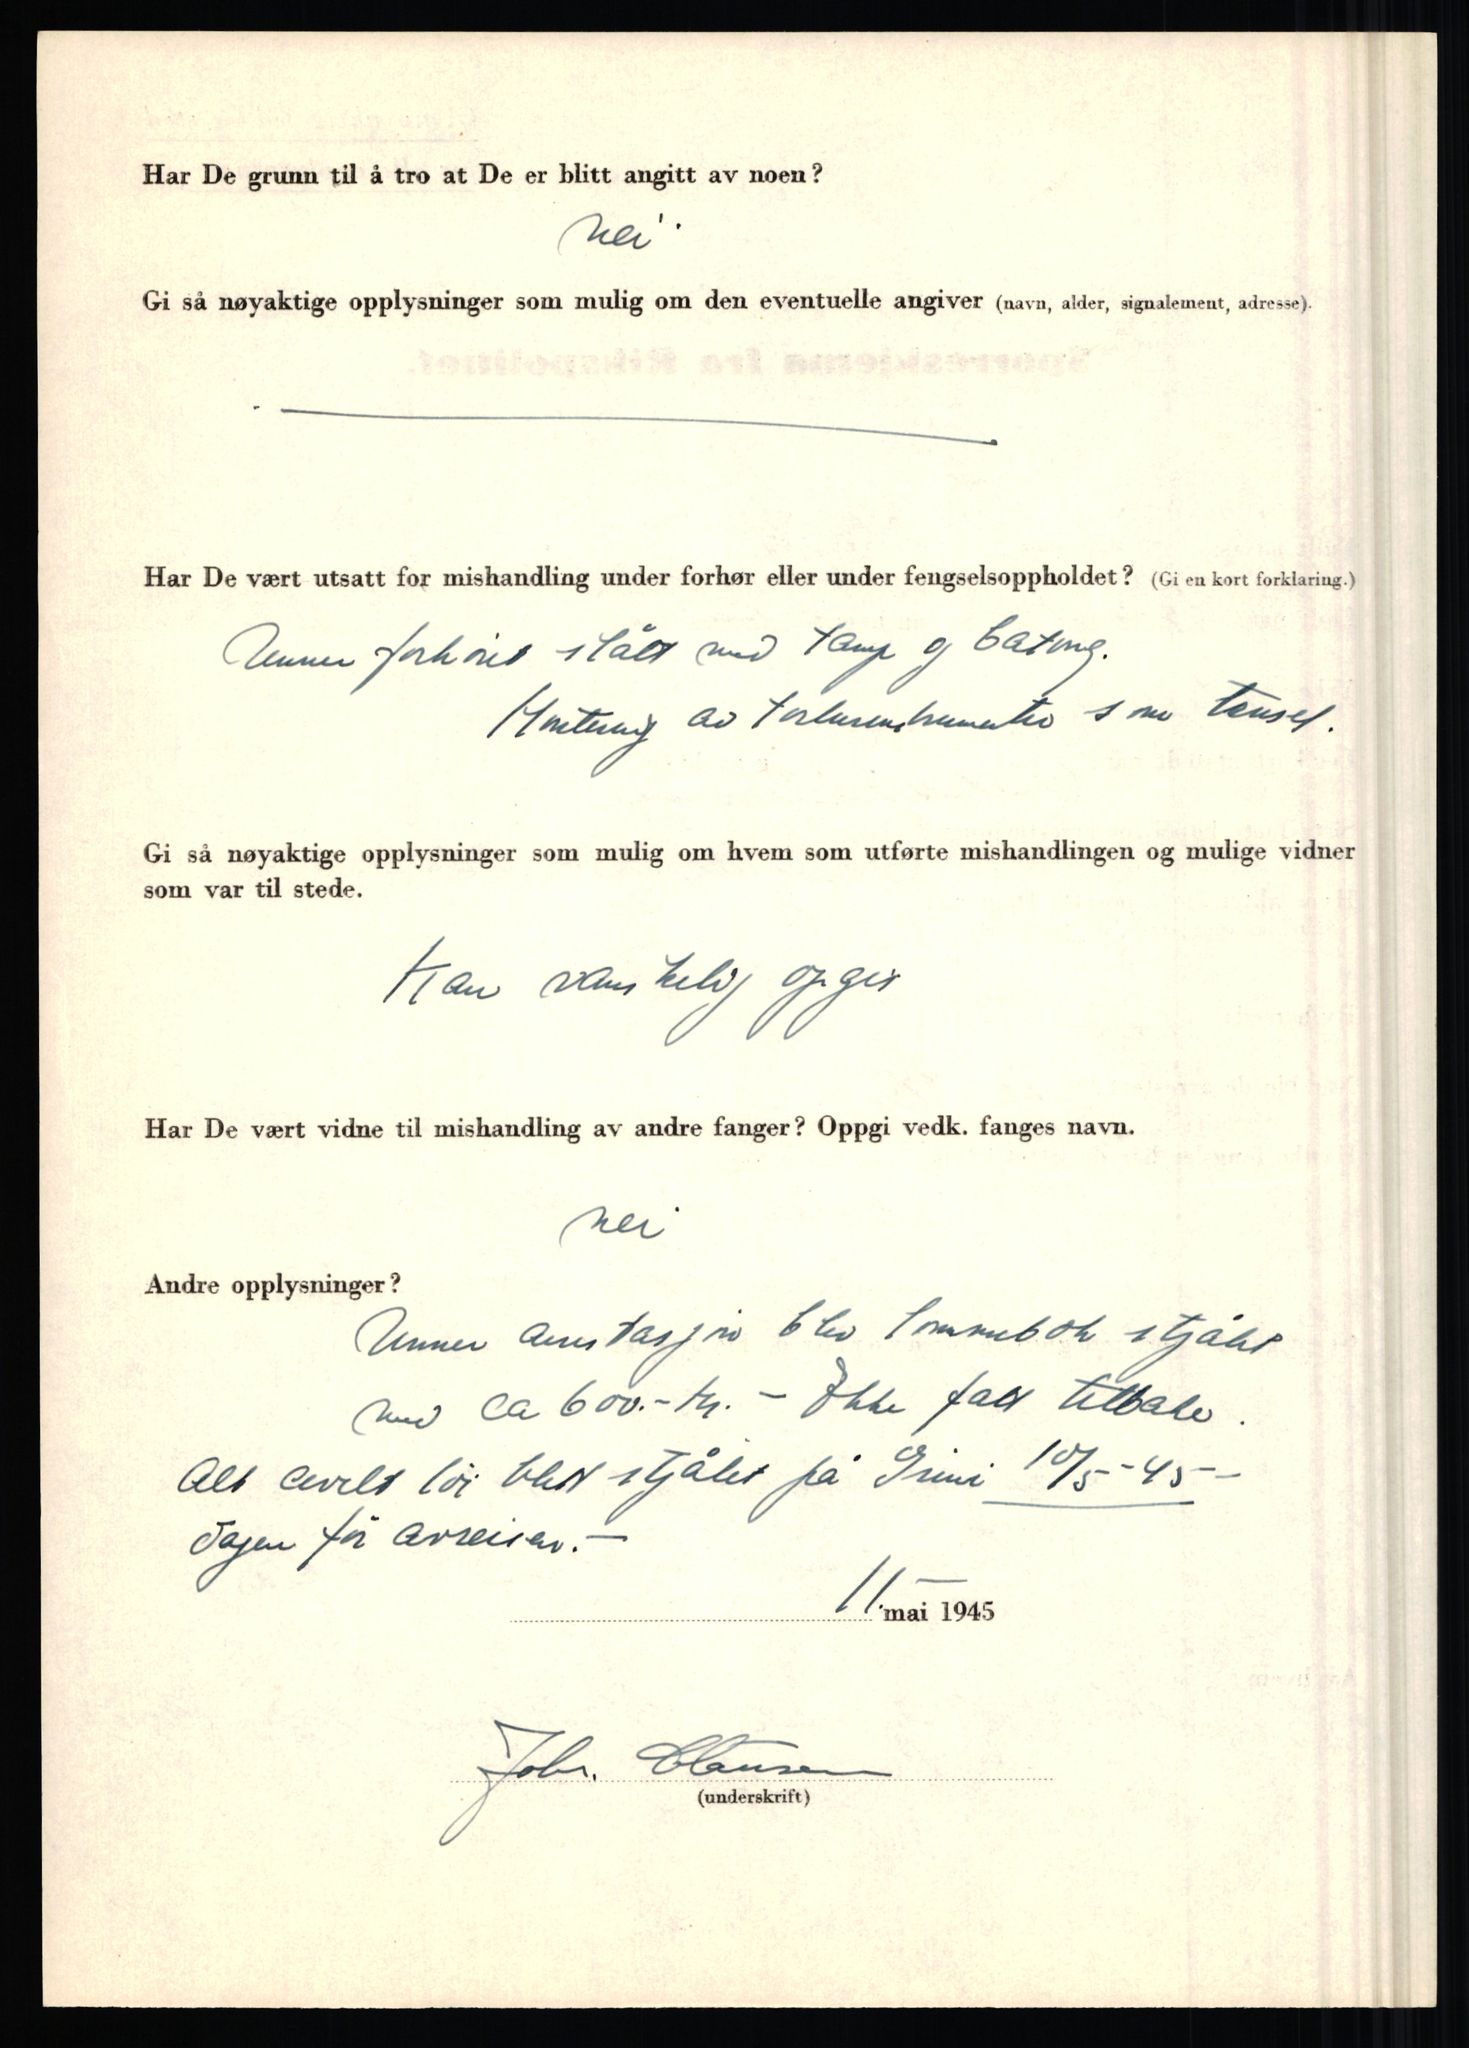 Har De grunn til å tro at De er blitt angitt av noen?
Nei
Gi så nøyaktige opplysninger som mulig om den eventuelle angiver (navn, alder, signalement, adresse).
Har De vært utsatt for mishandling under forhør eller under fengselsoppholdet? (Gi en kort forklaring.)
Unner forhöret slått med tamp og batong.
Hentning av torturinstrumenter som trusel.
Gi så nøyaktige opplysninger som mulig om hvem som utførte mishandlingen og mulige vidner
som var til stede.
Kan vanskelig opgis
Har De vært vidne til mishandling av andre fanger? Oppgi vedk. fanges navn.
Nei
Andre opplysninger?
Unner arrestasjon blev lommebok stjålet
med ca 600.- kr. – Ikke fått tilbake.
Alt civilt töi blitt stjålet på Grini 10/5-45 –
dagen för avreisen. –
11. mai 1945
Johr. Clausen
(underskrift)